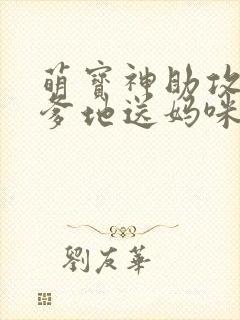 萌寶神助攻
爹地送媽咪
劉友華